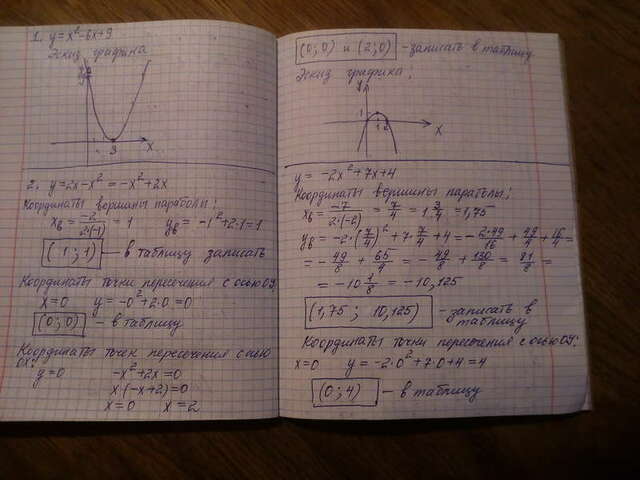 1. y=x²-6x+9
Эскиз графика
9
3
x
2. y=2x-x² = -x²+2x
Координаты вершины параболы:
xв = -2/2·(-1) = 1   yв = -1²+2·1=1
(1; 1) — в таблицу записать
Координаты точки пересечения с осью OY:
x=0   y=-0²+2·0=0
(0; 0) — в таблицу
Координаты точек пересечения с осью
OX:
y=0   -x²+2x=0
x·(-x+2)=0
x=0   x=2
(0; 0) и (2; 0) - записать в таблицу
Эскиз графика:
y
1
1 2
x
y = -2x²+7x+4
Координаты вершины параболы:
xв = -7/2·(-2) = 7/4 = 1 3/4 = 1,75
yв = -2·(7/4)² + 7·7/4 + 4 = -2·49/16 + 49/4 + 16/4 =
= -49/8 + 65/4 = -49/8 + 130/8 = 81/8 =
= -10 1/8 = -10,125
(1,75; 10,125) - записать в
таблицу
Координаты точки пересечения с осью OY:
x=0   y=-2·0²+7·0+4=4
(0; 4) — в таблицу